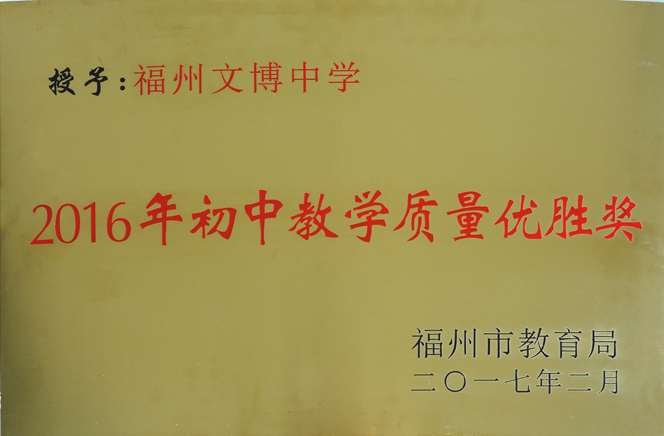 授予:福州文博中学
2016年初中教学质量优胜奖
福州市教育局
二〇一七年二月